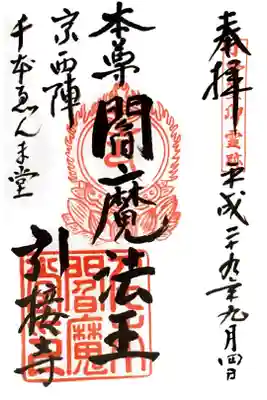 奉拝 平成二十九年九月四日
本尊 閻魔法王
京西陣
千本ゑんま堂
引接寺